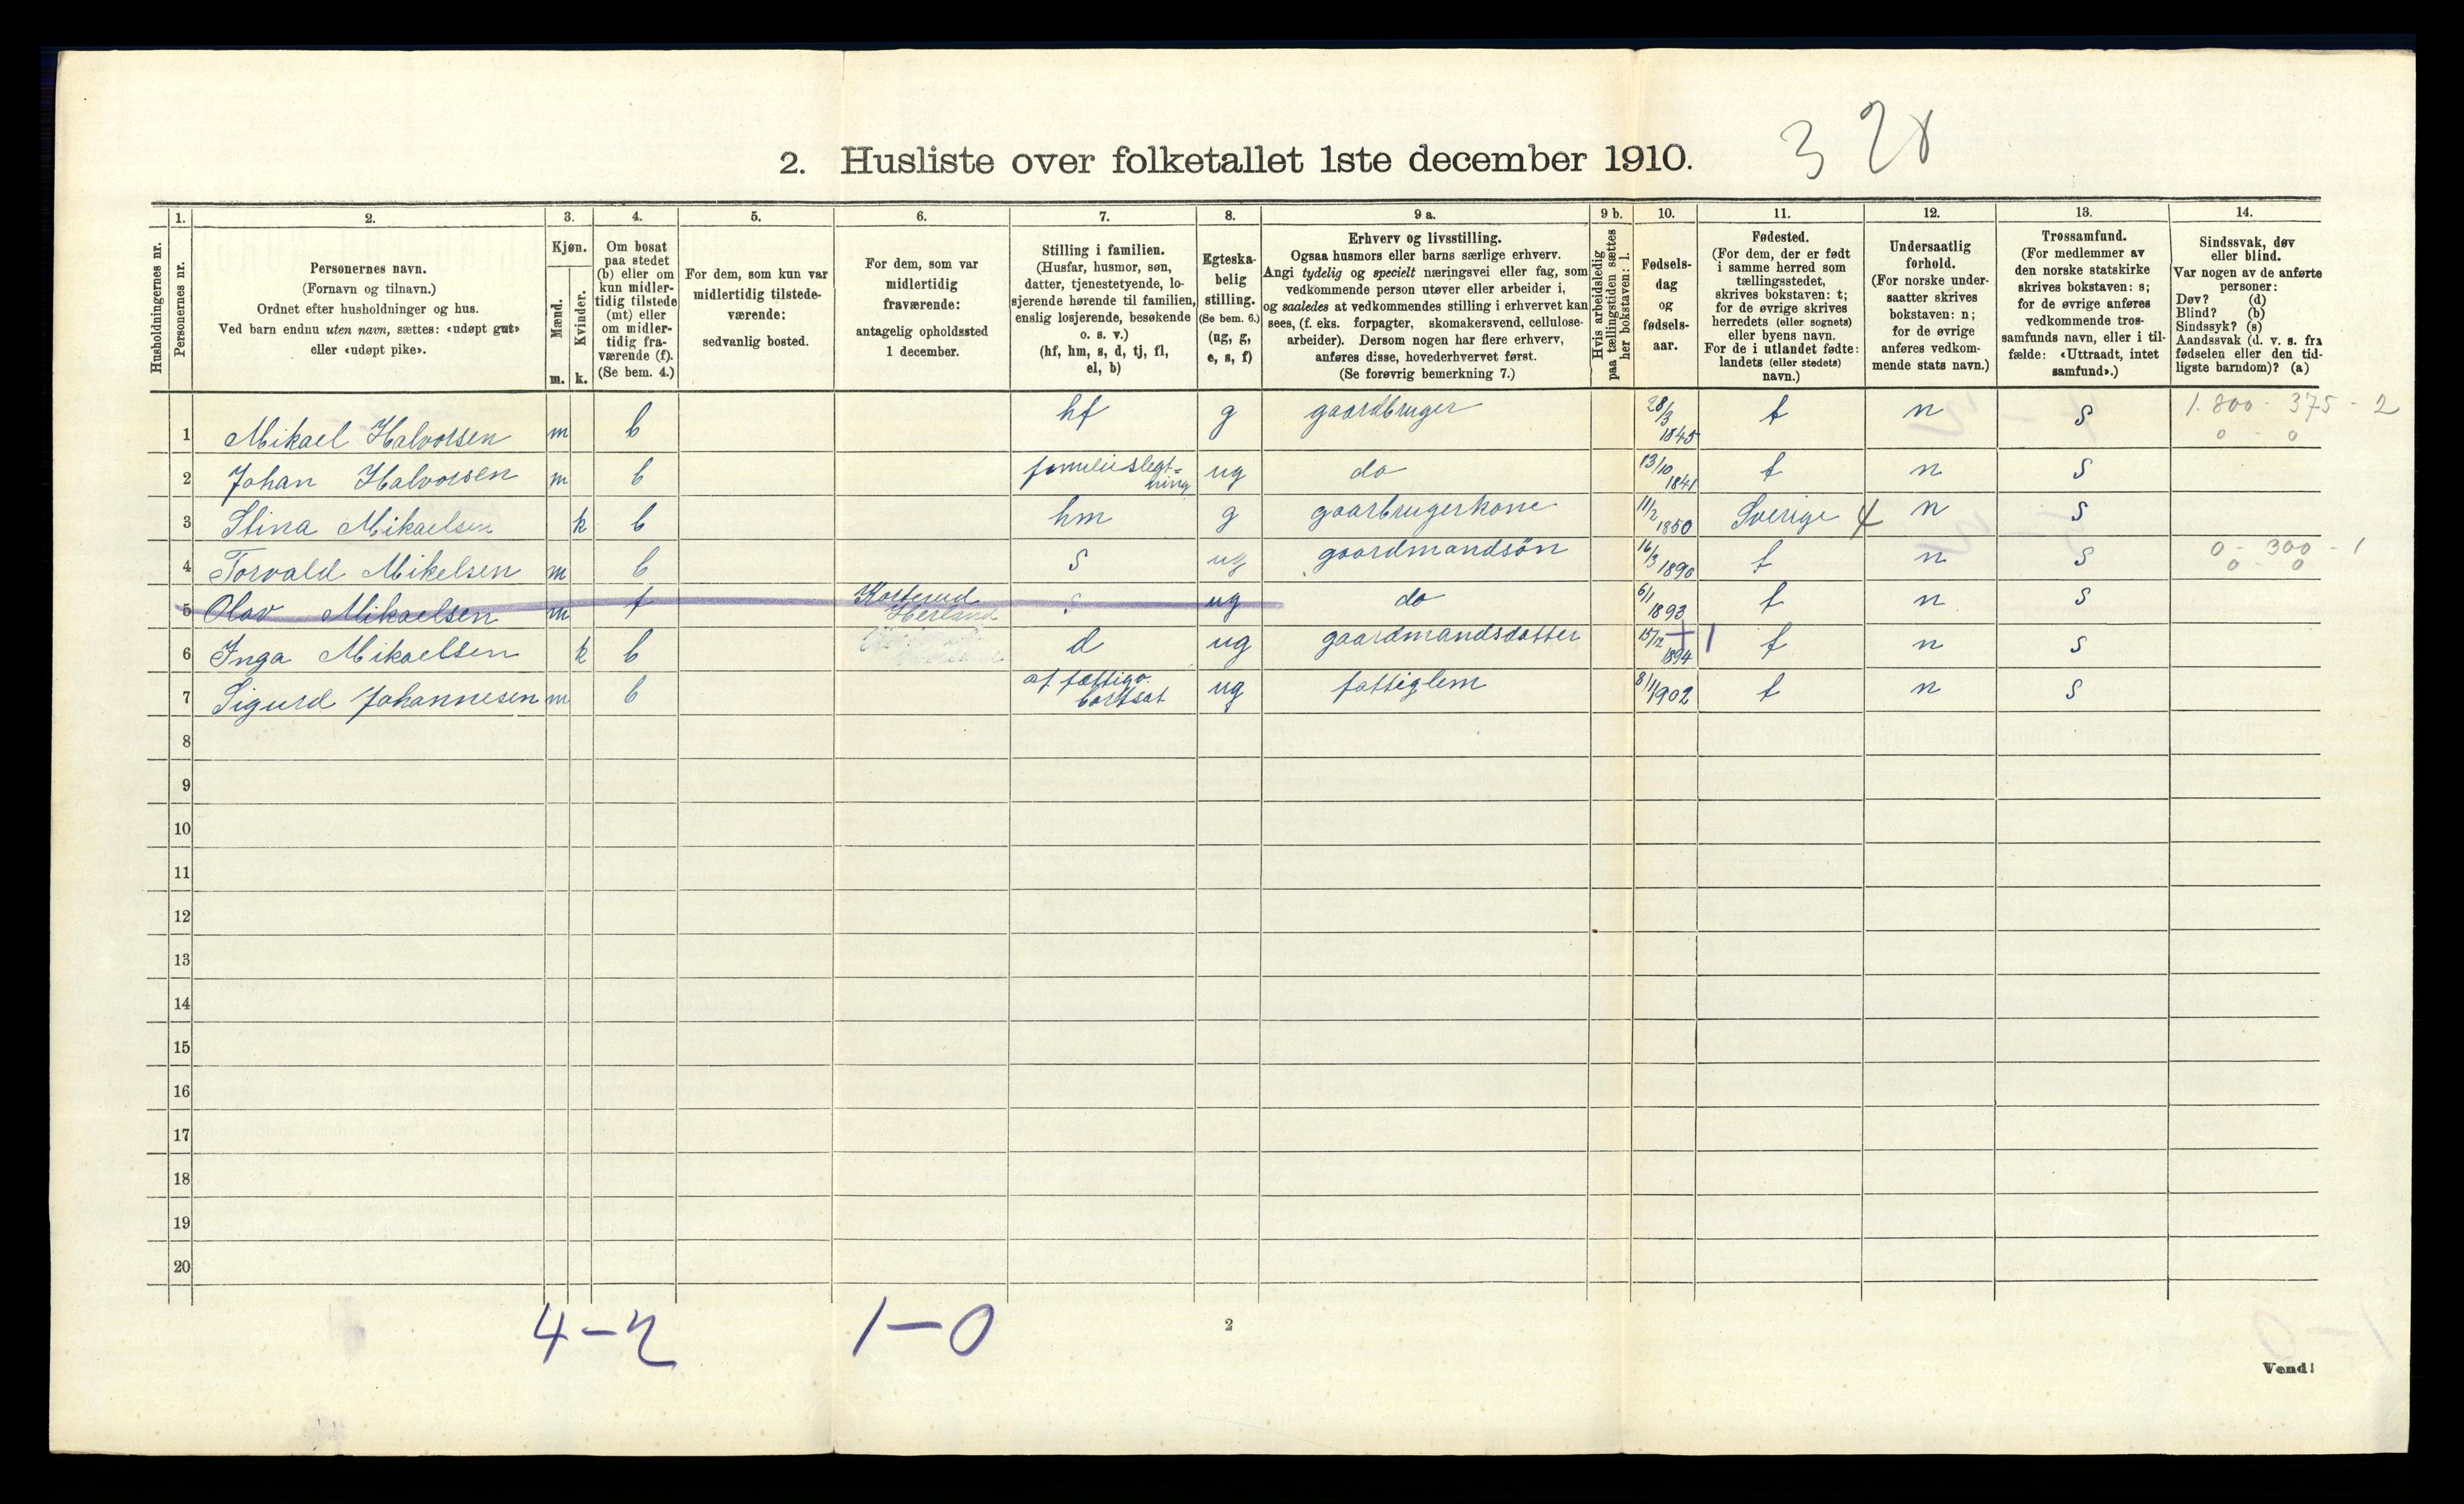 3 28
2. Husliste over folketallet 1ste december 1910.
Husholdningernes nr.
1.
Personernes nr.
2.
Personernes navn.
(Fornavn og tilnavn.)
Ordnet efter husholdninger og hus.
Ved barn endnu uten navn, sættes: «udøpt gut»
eller «udøpt pike».
3.
Kjøn.
Mænd.
Kvinder.
m. k.
4.
Om bosat
paa stedet
(b) eller om
kun midler-
tidig tilstede
(mt) eller
om midler-
tidig fra-
værende (f).
(Se bem. 4.)
5.
For dem, som kun var
midlertidig tilstede-
værende:
sedvanlig bosted.
6.
For dem, som var
midlertidig
fraværende:
antagelig opholdssted
1 december.
7.
Stilling i familien.
(Husfar, husmor, søn,
datter, tjenestetyende, lo-
sjerende hørende til familien,
enslig losjerende, besøkende
o. s. v.)
(hf, hm, s, d, tj, fl,
el, b)
8.
Egteska-
belig
stilling.
(Se bem. 6.)
(ug, g,
e, s, f)
9 a.
Erhverv og livsstilling.
Ogsaa husmors eller barns særlige erhverv.
Angi tydelig og specielt næringsvei eller fag, som
vedkommende person utøver eller arbeider i,
og saaledes at vedkommendes stilling i erhvervet kan
sees, (f. eks. forpagter, skomakersvend, cellulose-
arbeider). Dersom nogen har flere erhverv,
anføres disse, hovederhvervet først.
(Se forøvrig bemerkning 7.)
9 b.
Hvis arbeidsledig
paa tællingstiden sættes
her bokstaven: l.
10.
Fødsels-
dag
og
fødsels-
aar.
11.
Fødested.
(For dem, der er født
i samme herred som
tællingsstedet,
skrives bokstaven: t;
for de øvrige skrives
herredets (eller sognets)
eller byens navn.
For de i utlandet fødte:
landets (eller stedets)
navn.)
12.
Undersaatlig
forhold.
(For norske under-
saatter skrives
bokstaven: n;
for de øvrige
anføres vedkom-
mende stats navn.)
13.
Trossamfund.
(For medlemmer av
den norske statskirke
skrives bokstaven: s;
for de øvrige anføres
vedkommende tros-
samfunds navn, eller i til-
fælde: «Uttraadt, intet
samfund».)
14.
Sindssvak, døv
eller blind.
Var nogen av de anførte
personer:
Døv? (d)
Blind? (b)
Sindssyk? (s)
Aandssvak (d. v. s. fra
fødselen eller den tid-
ligste barndom)? (a)
1 Mikael Halvorsen m b hf g gaardbruger 28/3 1845 t n s 1.800 - 375 - 2
0 - 0
2 Johan Halvorsen m b familieslegt=
ning ug do 13/10 1841 t n s
3 Stina Mikaelsen k b hm g gaarbrugerkone 11/2 1850 Sverige 4 n s
4 Torvald Mikelsen m b s ug gaardmandsön 16/3 1890 t n s 0 - 300 - 1
0 - 0
5 Olav Mikaelsen m f Kosterud
Herland s ug do 6/1 1893 t n s
6 Inga Mikaelsen k b d ug gaardmandsdatter 15/12 1894 t n s
7 Sigurd Johannesen m b af fattigv.
bortsat ug fattiglem 8/1 1902 t n s
8
9
10
11
12
13
14
15
16
17
18
19
20
4-2 1-0
2
Vend!